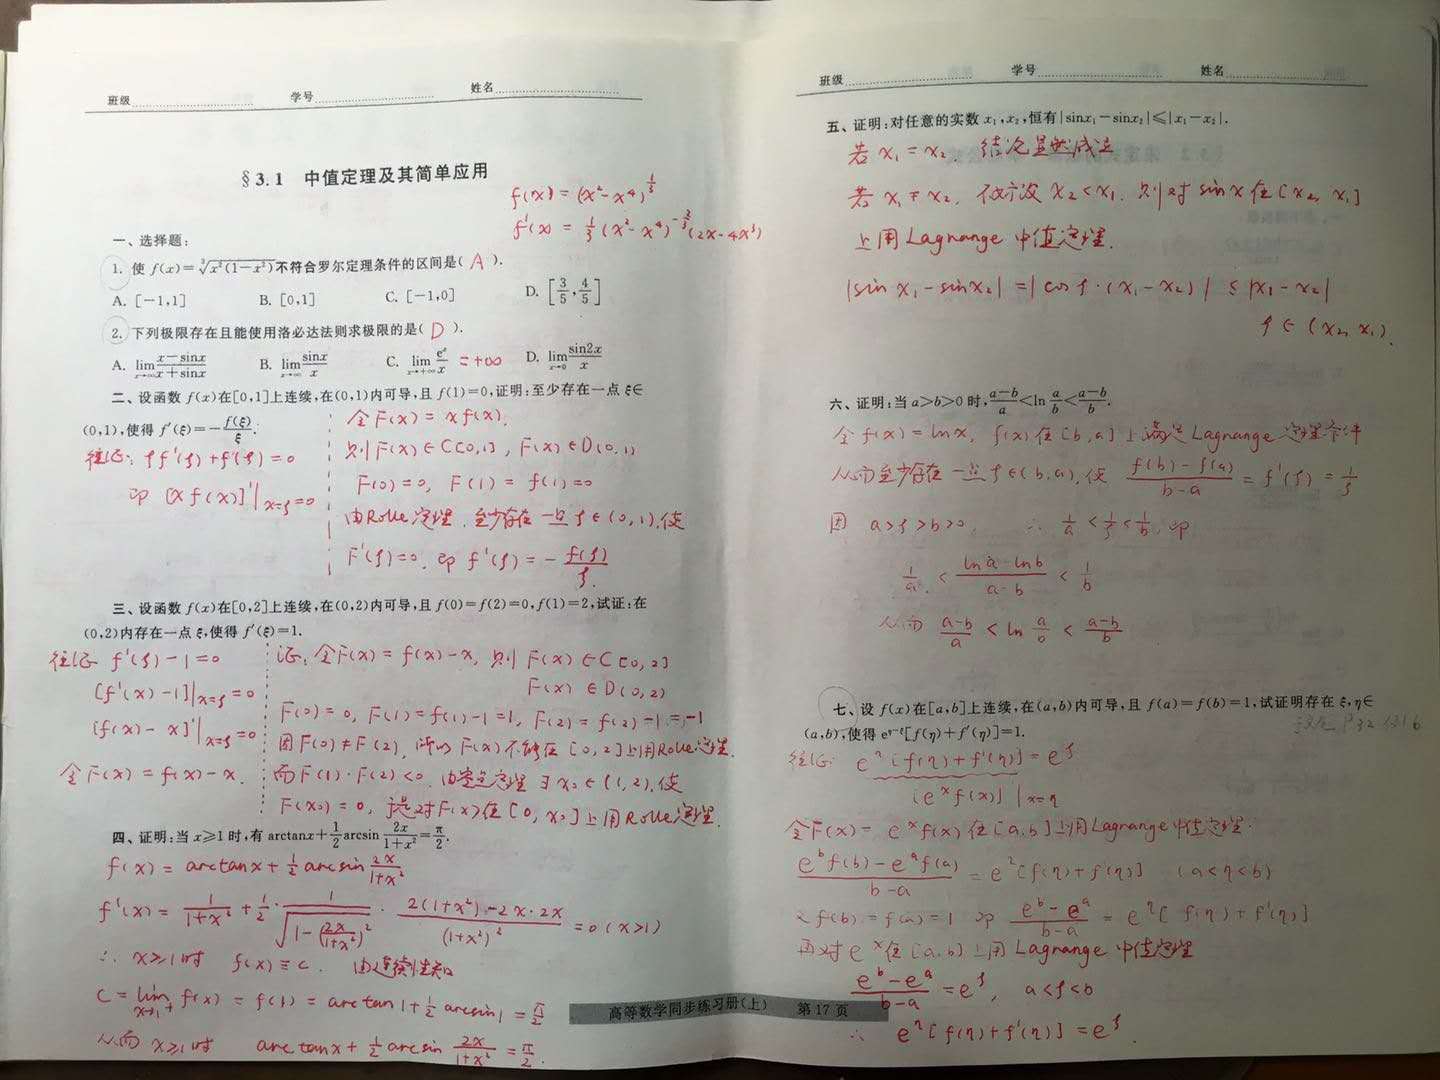 班级 学号 姓名
§3.1 中值定理及其简单应用
f(x) = (x²-x⁴)^{1/3}
f'(x) = 1/3 (x²-x⁴)^{-2/3} (2x-4x³)
一、选择题:
1. 使 f(x)=∛(x²(1-x²)) 不符合罗尔定理条件的区间是( A ).
A. [-1,1] B. [0,1] C. [-1,0] D. [3/5, 4/5]
2. 下列极限存在且能使用洛必达法则求极限的是( D ).
A. lim_{x→∞} (x-sinx)/(x+sinx) B. lim_{x→∞} sinx/x C. lim_{x→+∞} eˣ/x = +∞ D. lim_{x→0} sin2x/x
二、设函数 f(x)在[0,1]上连续,在(0,1)内可导,且 f(1)=0,证明:至少存在一点 ξ∈
(0,1),使得 f'(ξ)=-f(ξ)/ξ.
往证: ξf'(ξ)+f(ξ)=0
即 [xf(x)]'|x=ξ=0
令F(x)=xf(x),
则F(x)∈C[0,1], F(x)∈D(0,1)
F(0)=0, F(1)=f(1)=0
由Rolle定理,至少存在一点ξ∈(0,1),使
F'(ξ)=0,即 f'(ξ)=-f(ξ)/ξ.
三、设函数 f(x)在[0,2]上连续,在(0,2)内可导,且 f(0)=f(2)=0,f(1)=2,试证:在
(0,2)内存在一点 ξ,使得 f'(ξ)=1.
往证 f'(ξ)-1=0
[f'(x)-1]|x=ξ=0
[f(x)-x]'|x=ξ=0
令F(x)=f(x)-x.
证:令F(x)=f(x)-x, 则F(x)∈C[0,2]
F(x)∈D(0,2)
F(0)=0, F(1)=f(1)-1=1, F(2)=f(2)-1=-1
因F(0)≠F(2), 所以F(x)不能在[0,2]上用Rolle定理.
而F(1)·F(2)<0, 由零点定理 ∃x₀∈(1,2),使
F(x₀)=0, 于是对F(x)在[0,x₀]上用Rolle定理.
四、证明:当 x≥1 时,有 arctanx+1/2 arcsin 2x/(1+x²)=π/2.
f(x)=arctanx+1/2 arcsin 2x/(1+x²)
f'(x)=1/(1+x²)+1/2·1/√(1-(2x/(1+x²))²)·(2(1+x²)-2x·2x)/(1+x²)²=0 (x>1)
∴ x≥1时 f(x)≡c. 由连续性知
C=lim_{x→1+} f(x)=f(1)=arctan1+1/2 arcsin1=π/2
从而 x≥1时 arctanx+1/2 arcsin 2x/(1+x²)=π/2.
班级 学号 姓名
五、证明:对任意的实数 x₁,x₂,恒有|sinx₁-sinx₂|≤|x₁-x₂|.
若 x₁=x₂, 结论显然成立
若 x₁≠x₂, 不妨设 x₂<x₁, 则对 sinx在[x₂,x₁]
上用Lagrange 中值定理.
|sin x₁-sinx₂|=|cosξ·(x₁-x₂)|≤|x₁-x₂|
ξ∈(x₂,x₁).
六、证明:当 a>b>0 时,(a-b)/a<ln a/b<(a-b)/b.
令f(x)=lnx, f(x)在[b,a]上满足Lagrange定理条件
从而至少存在一点ξ∈(b,a),使 (f(b)-f(a))/(b-a)=f'(ξ)=1/ξ
因 a>ξ>b>0, ∴ 1/a<1/ξ<1/b, 即
1/a<(lna-lnb)/(a-b)<1/b
从而 (a-b)/a<ln a/b<(a-b)/b
七、设 f(x)在[a,b]上连续,在(a,b)内可导,且 f(a)=f(b)=1,试证明存在 ξ,η∈
(a,b),使得 e^{η-ξ}[f(η)+f'(η)]=1.
P132 例6
往证: e^η[f(η)+f'(η)]=e^ξ
[eˣf(x)]'|x=η
令F(x)=eˣf(x)在[a,b]上用Lagrange中值定理.
(e^b f(b)-e^a f(a))/(b-a)=e^η[f(η)+f'(η)] (a<η<b)
又f(b)=f(a)=1 即 (e^b-e^a)/(b-a)=e^η[f(η)+f'(η)]
再对eˣ在[a,b]上用Lagrange 中值定理
(e^b-e^a)/(b-a)=e^ξ, a<ξ<b
∴ e^η[f(η)+f'(η)]=e^ξ.
高等数学同步练习册(上) 第17页